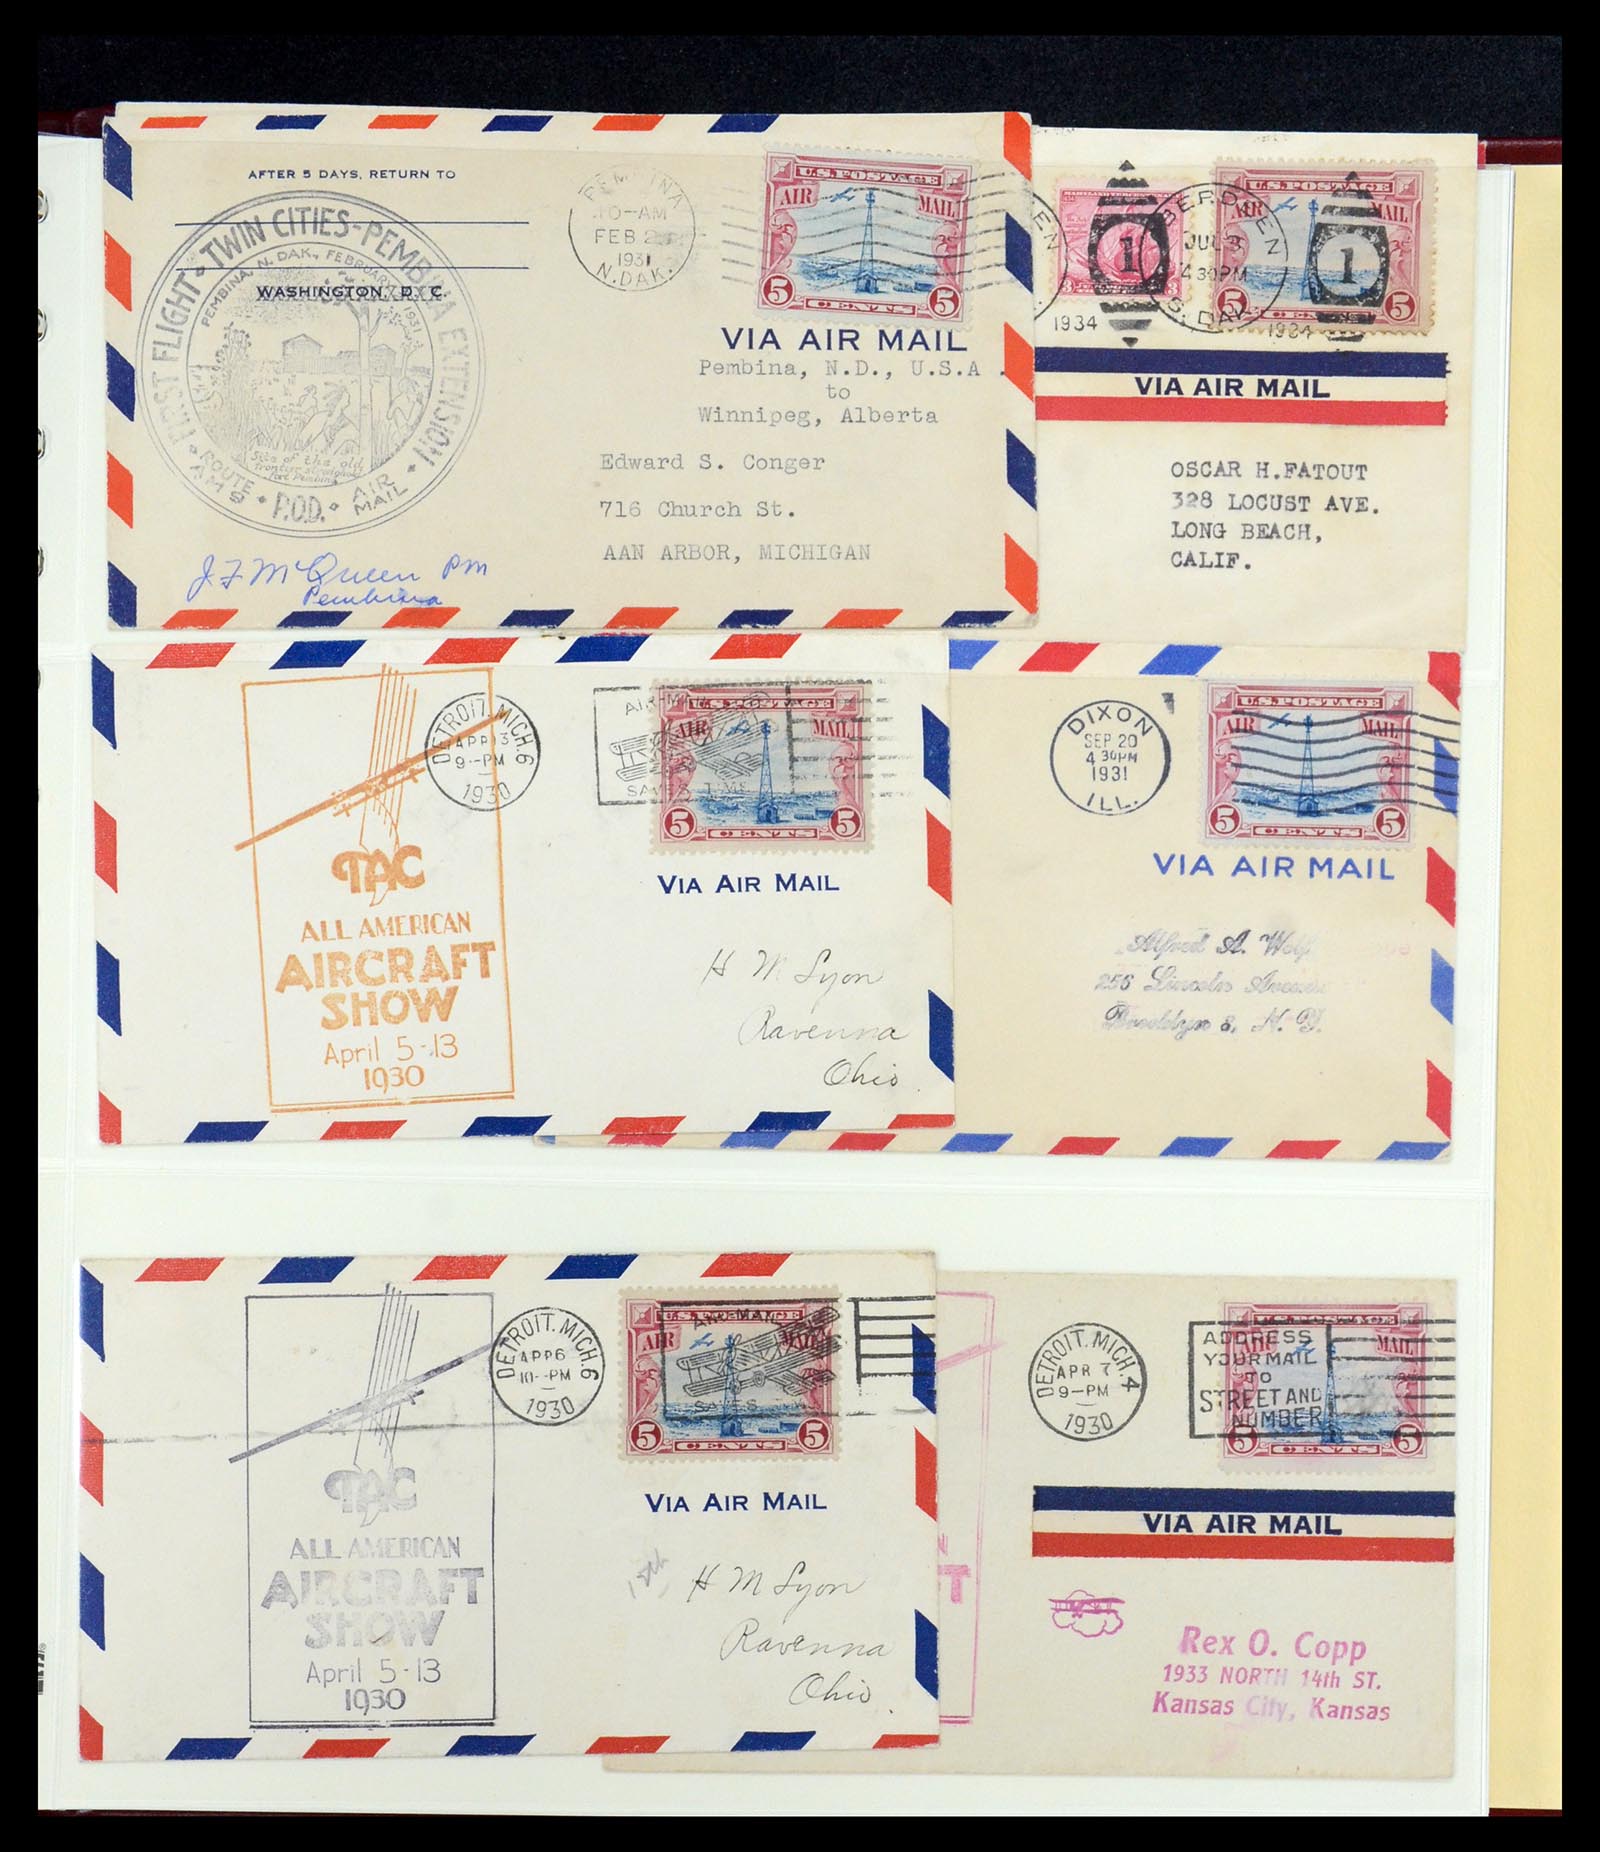 AFTER 5 DAYS, RETURN TO
WASHINGTON, D. C.
FIRST FLIGHT · TWIN CITIES-PEMBINA EXTENSION
PEMBINA, N. DAK., FEBRUARY 1931
Site of the old
frontier stronghold
Fort Pembina
ROUTE
AM 9
P.O.D.
AIR
MAIL
J F McQueen PM
Pembina
PEMBINA
10-AM
FEB 2
1931
N.DAK.
U.S. POSTAGE
AIR MAIL
5 CENTS 5
VIA AIR MAIL
Pembina, N.D., U.S.A.
to
Winnipeg, Alberta
Edward S. Conger
716 Church St.
AAN ARBOR, MICHIGAN
EN
1934
3 3
1
BERDEEN
JUL 3
4 30PM
S. DAK.
1934
U.S. POSTAGE
AIR MAIL
1
5 CENTS 5
VIA AIR MAIL
OSCAR H.FATOUT
328 LOCUST AVE.
LONG BEACH,
CALIF.
TAC
ALL AMERICAN
AIRCRAFT
SHOW
April 5-13
1930
DETROIT, MICH. 6
APR 13
9-PM
1930
AIR-MAIL
SAVES TIME
U.S. POSTAGE
AIR MAIL
5 CENTS 5
VIA AIR MAIL
H M Lyon
Ravenna
Ohio.
DIXON
SEP 20
4 30PM
1931
ILL.
U.S. POSTAGE
AIR MAIL
5 CENTS 5
VIA AIR MAIL
Alfred A. Wolf
256 Lincoln Avenue
Brooklyn 8, N. Y.
TAC
ALL AMERICAN
AIRCRAFT
SHOW
April 5-13
1930
DETROIT, MICH. 6
APR 6
10-PM
1930
AIR-MAIL
SAVES
U.S. POSTAGE
AIR MAIL
5 CENTS 5
VIA AIR MAIL
H M Lyon
Ravenna
Ohio.
T
DETROIT, MICH. 4
APR 7
9-PM
1930
ADDRESS
YOUR MAIL
TO
STREET AND
NUMBER
U.S. POSTAGE
AIR MAIL
5 CENTS 5
VIA AIR MAIL
Rex O. Copp
1933 NORTH 14th ST.
Kansas City, Kansas